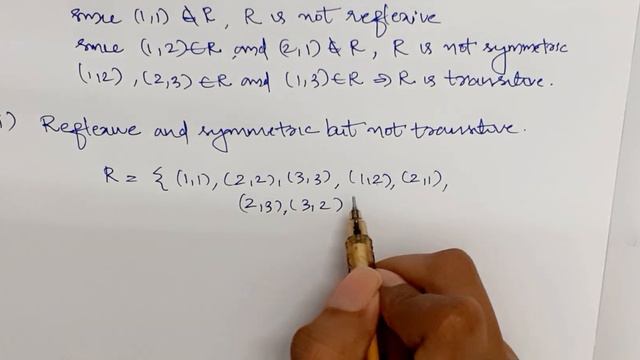 since (1,1) ∉ R, R is not reflexive
since (1,2) ∈ R and (2,1) ∉ R, R is not symmetric
(1,2), (2,3) ∈ R and (1,3) ∈ R ⇒ R is transitive.
i) Reflexive and symmetric but not transitive.
R = { (1,1), (2,2), (3,3), (1,2), (2,1),
(2,3), (3,2)